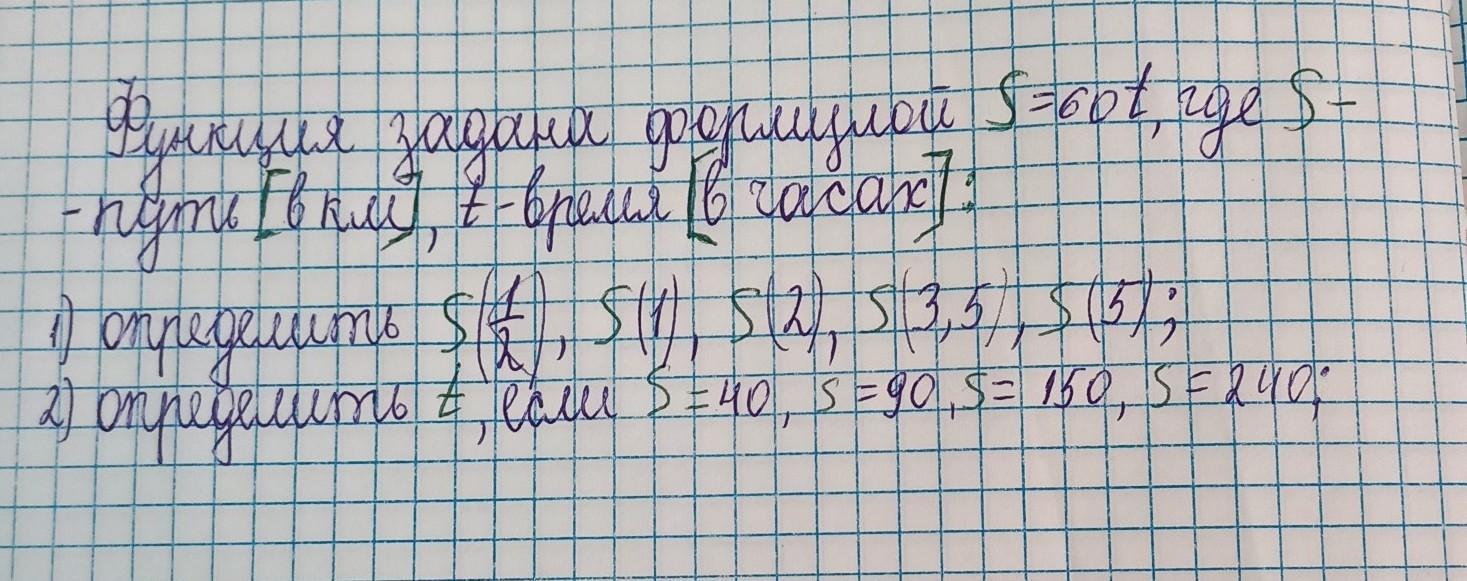 Функция задана формулой S=60t, где S-
-путь [в км], t-время [в часах]:
1) определить S(1/2), S(1), S(2), S(3,5), S(5);
2) определить t, если S=40, s=90, s=150, S=240;